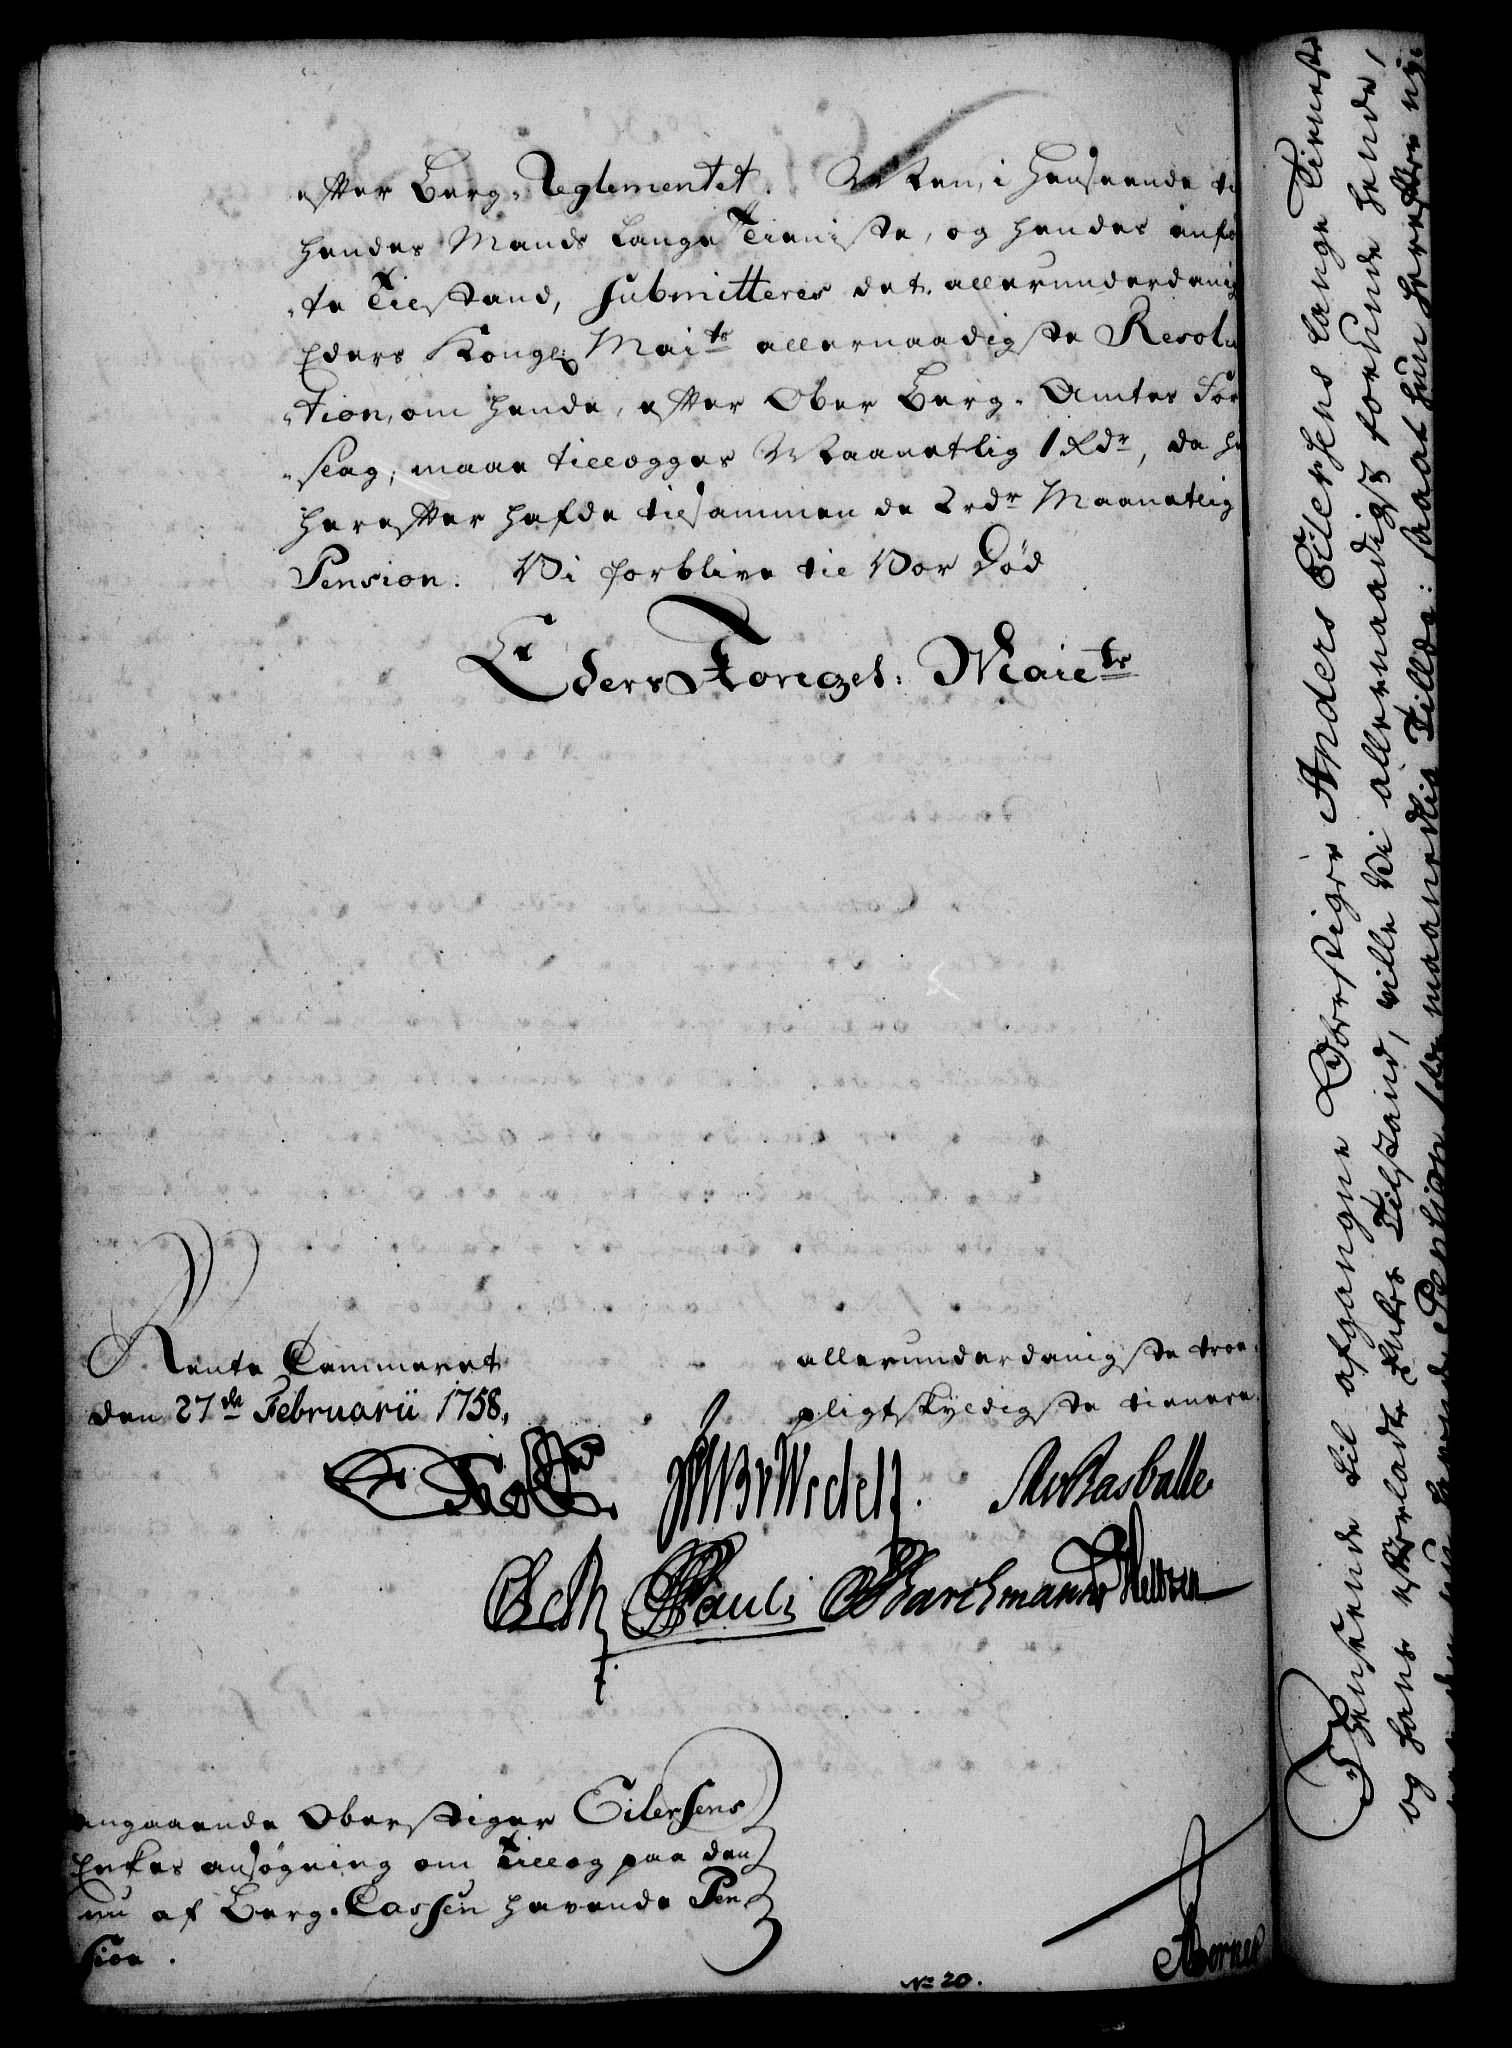 efter Berg-Reglementet. Men, i Henseende ti
hendes Mands lange Tieniste, og hendes anfø
-te Tilstand, submitteres det allerunderdanig
Eders Kongl: Mai<sup>ts</sup> allernaadigste Resolu
-tion, om hende, efter Ober Berg-Amtes For
-slag, maae tillegges Maanetlig 1 Rdr, da h
herefter hafde tilsammen de 2 rdr Maanetlig
Pension. Vi forblive til Vor Død
Eders Kongel: Maie<sup>ts</sup>
Rente Cammeret
den 27<sup>de</sup> Februarii 1758.
allerunderdanigste troe-
pligtskyldigste tienere.
Wedell
Rasballe
Pauli
Barchmann
angaaende Oberstiger Eilersens
Enkes ansøgning om Tillog paa den
nu af Berg-Cassen havende Pen-
sion.
No 20.
I Henseende til afgangne Oberstiger Anders Eilersens lange Tieneste
og hans efterladte Enkes Tilstand, ville Vi allernaadigst forunde hende,
maanedlig Tillæg: saa at hun herefter